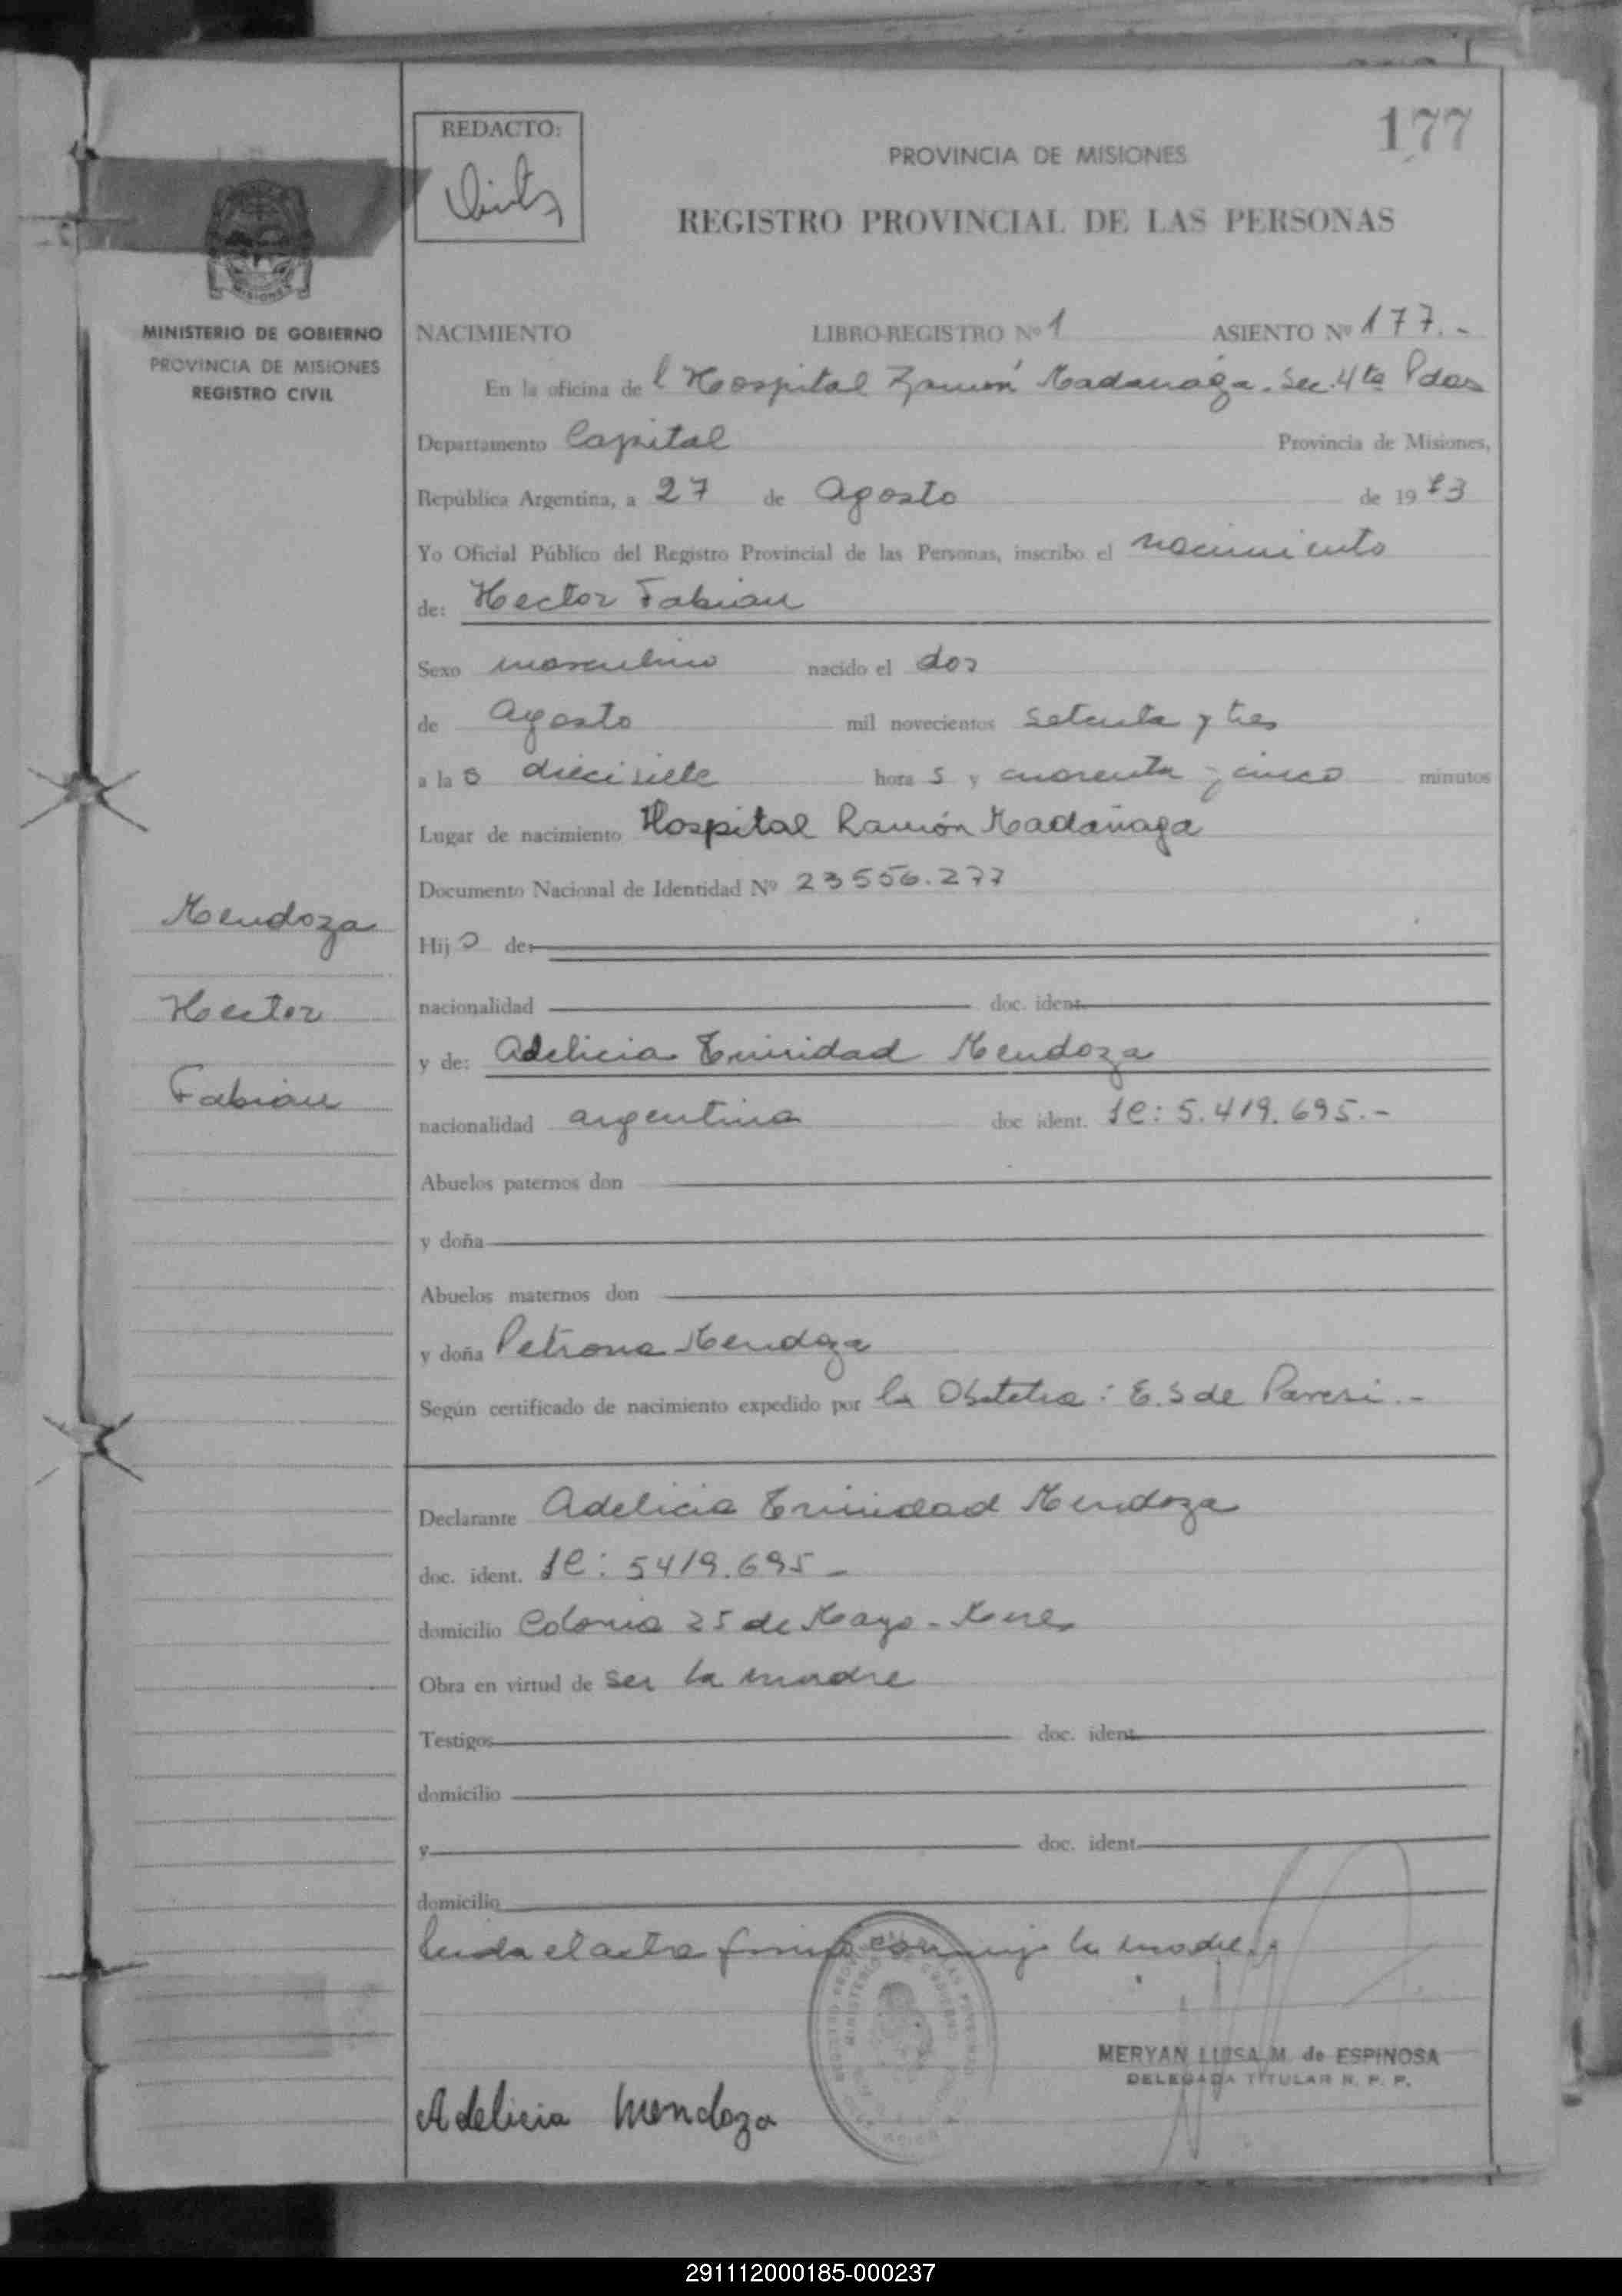 177
REDACTO:
PROVINCIA DE MISIONES
REGISTRO PROVINCIAL DE LAS PERSONAS
MISIONES
MINISTERIO DE GOBIERNO
PROVINCIA DE MISIONES
REGISTRO CIVIL
NACIMIENTO LIBRO-REGISTRO Nº 1 ASIENTO Nº 177.-
En la oficina de l Hospital Ramón Madariaga. Sec. 4ta Pdas
Departamento Capital Provincia de Misiones,
República Argentina, a 27 de Agosto de 1973
Yo Oficial Público del Registro Provincial de las Personas, inscribo el nacimiento
de: Hector Fabian
Sexo masculino nacido el dos
de Agosto mil novecientos setenta y tres
a las diecisiete horas y cuarenta y cinco minutos
Lugar de nacimiento Hospital Ramón Madariaga
Documento Nacional de Identidad Nº 23556.277
Hijo de:
nacionalidad doc. ident.
y de: Adelicia Trinidad Mendoza
nacionalidad argentina doc ident. LC: 5.419.695.-
Abuelos paternos don
y doña
Abuelos maternos don
y doña Petrona Mendoza
Según certificado de nacimiento expedido por la Obstetra: E.S de Paresi.-
Mendoza
Hector
Fabian
Declarante Adelicia Trinidad Mendoza
doc. ident. LC: 5419.695-
domicilio Colonia 25 de Mayo-
Obra en virtud de ser la madre
Testigos doc. ident.
domicilio
y doc. ident.
domicilio
Leida el acta firma conmigo la madre.
MERYAN LUISA M. de ESPINOSA
DELEGADA TITULAR R. P. P.
Adelicia Mendoza
291112000185-000237